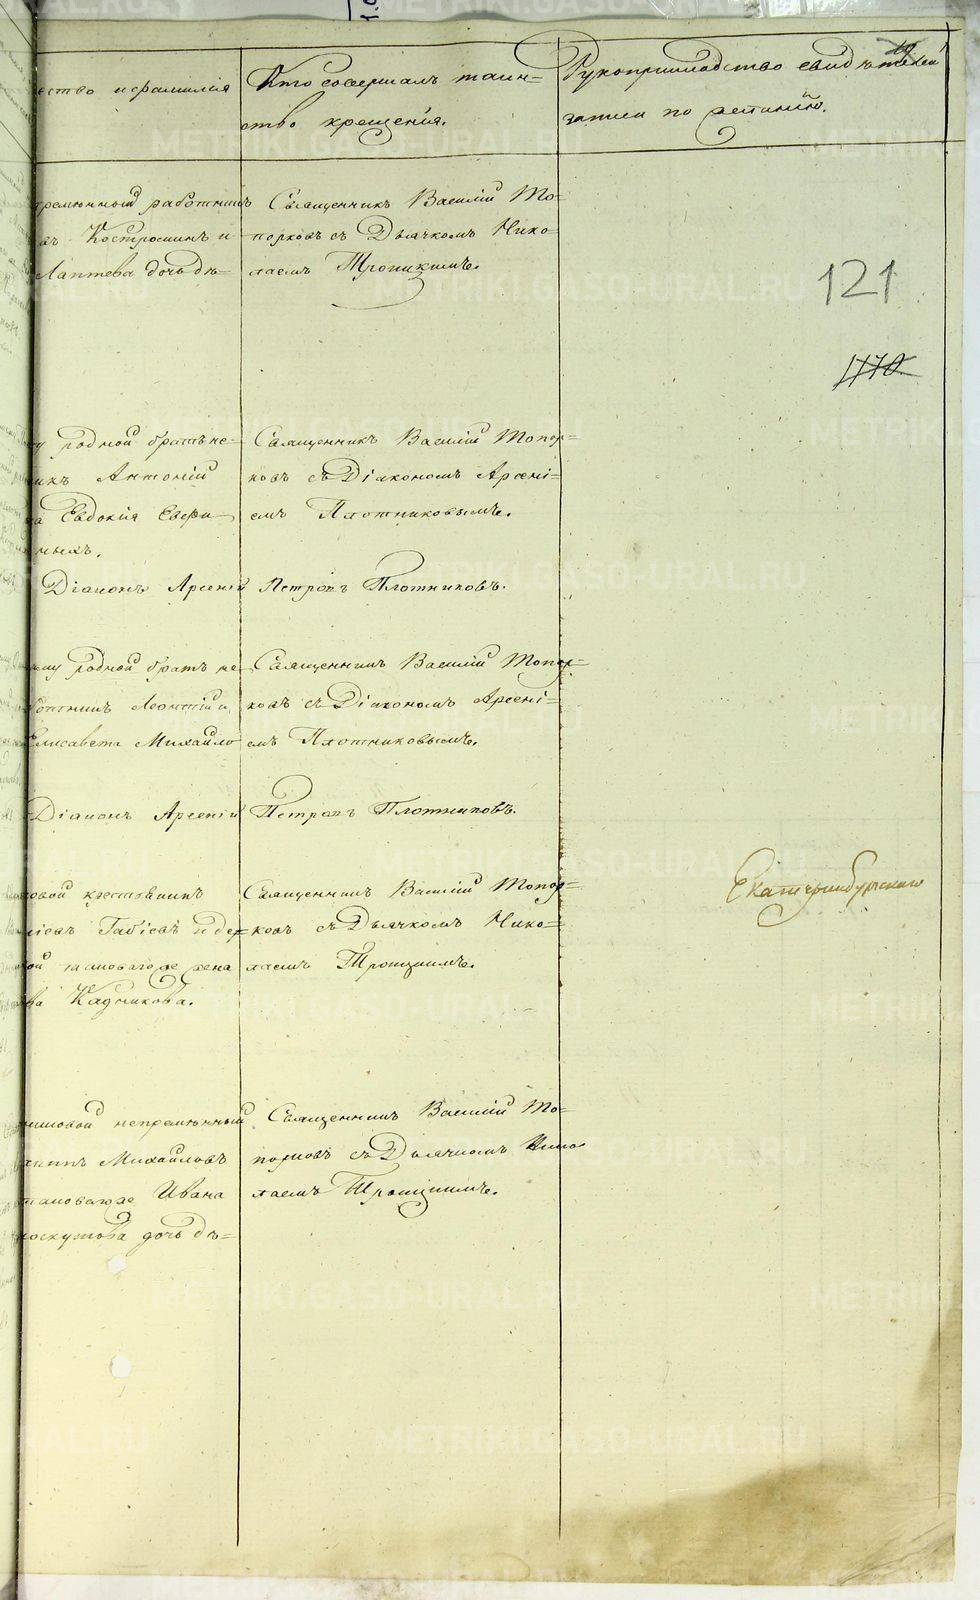 ество и фамилия
Кто совершалъ таин=
ство крещенiя.
Рукоприкладство свидѣтелей
записи по желанiю.
121
1770
тремѣнный работникъ
въ Костроминъ и
Лаптева дочь дѣ=
Священникъ Василiй То=
порковъ съ Дьячкомъ Нико=
лаемъ Троицкимъ.
родной братъ не=
икъ Антонiй
Евдокiя Евфи
мныхъ.
Священникъ Василiй Топор=
ковъ съ Дiакономъ Арсенi=
емъ Плотниковымъ.
Дiаконъ Арсенiй Петровъ Плотниковъ.
родной братъ не
ботникъ Леонтiй и
Елисавета Михайло
Священникъ Василiй Топор=
ковъ съ Дiакономъ Арсенi=
емъ Плотниковымъ.
Дiаконъ Арсенiй Петровъ Плотниковъ.
ковой крестьянинъ
Габiевъ и дер=
ой таковагоже
ва Кадникова.
Священникъ Василiй Топор=
ковъ съ Дьячкомъ Нико=
лаемъ Троицкимъ.
Екатеринбургскаго
непремѣнный
Михайловъ
таковагоже Ивана
лоскутова дочь дѣ=
Священникъ Василiй То=
порковъ съ Дьячкомъ Нико=
лаемъ Троицкимъ.
METRIKI.GASO-URAL.RU